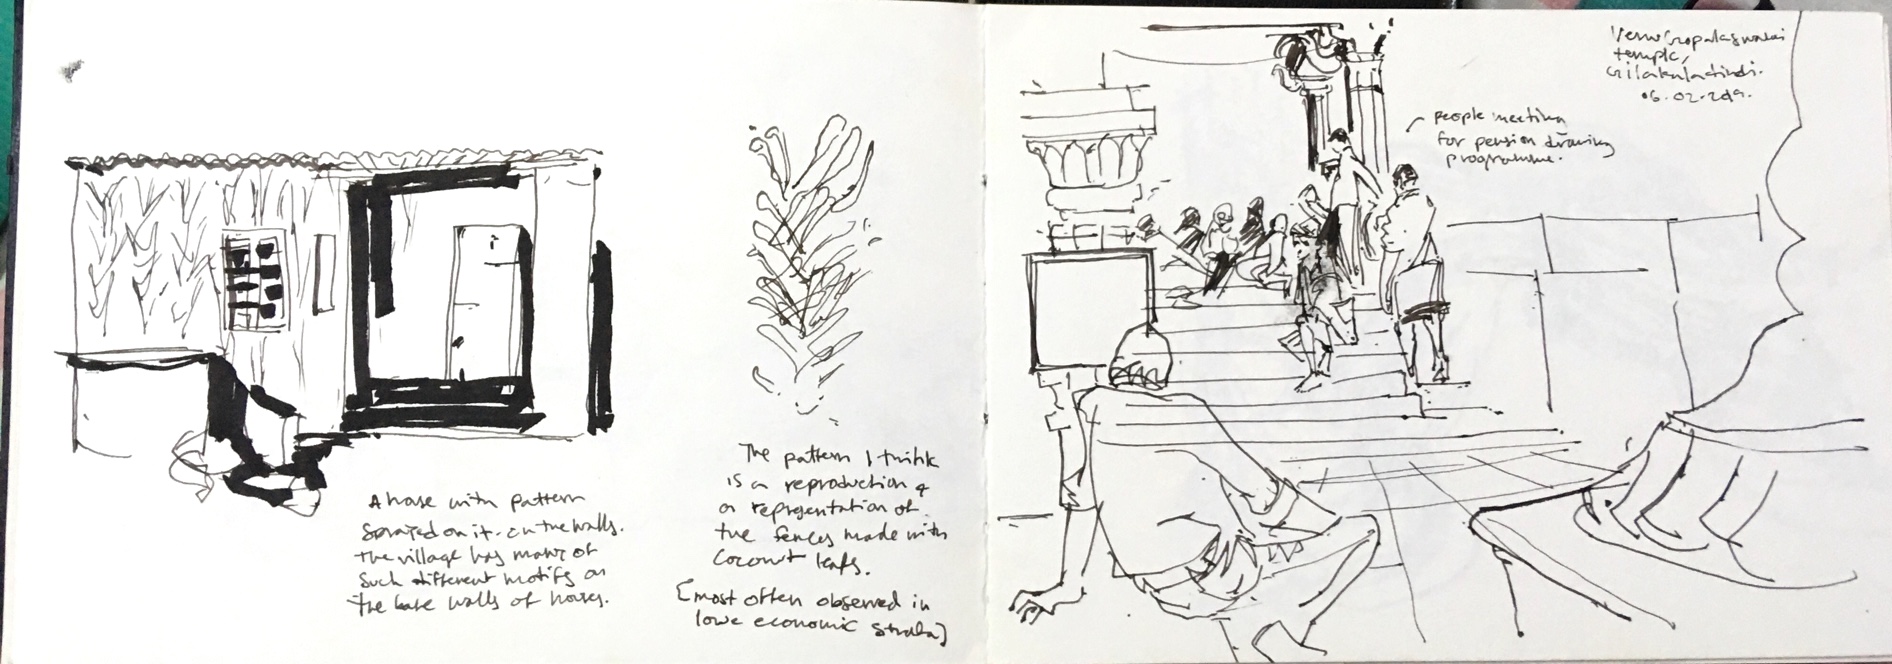 A house with pattern
Sprayed on it. on the walls.
The village has many of
Such different motifs on
the bare walls of houses.
The pattern I think
is a reproduction &
a representation of
the fences made with
Coconut leafs.
[most often observed in
lowe economic strata]
VenuGopalaswami
temple,
Gilakaladindi.
06.02.2019.
people meeting
for pension drawing
programme.